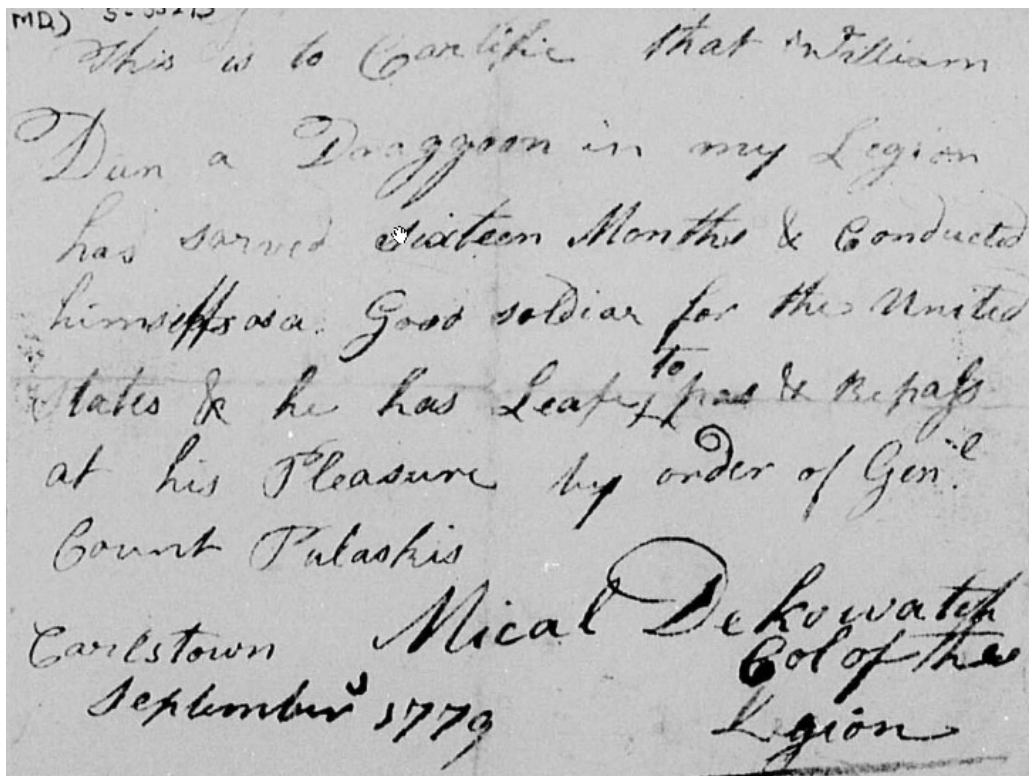 MD)
This is to Cartifie that William
Dun a Draggoon in my Legion
has sarved sixteen Months & Conducted
himself as a Good soldiar for the United
states & he has Leafe to pas & Repass
at his Pleasure by order of Genl.
Count Pulaskis
Mical Dekowatch
Carlstown
Col of the
September 1779
Legion